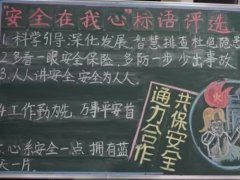 "安全在我心"标语评选
1.科学引导,深化发展,智慧排查杜绝隐患
2.多看一眼安全保险,多防一步少出事故
3.人人讲安全,安全为人人
4.工作勤为先,万事平安首
心系安全一点,拥有蓝
天一片.
共保安全
通力合作